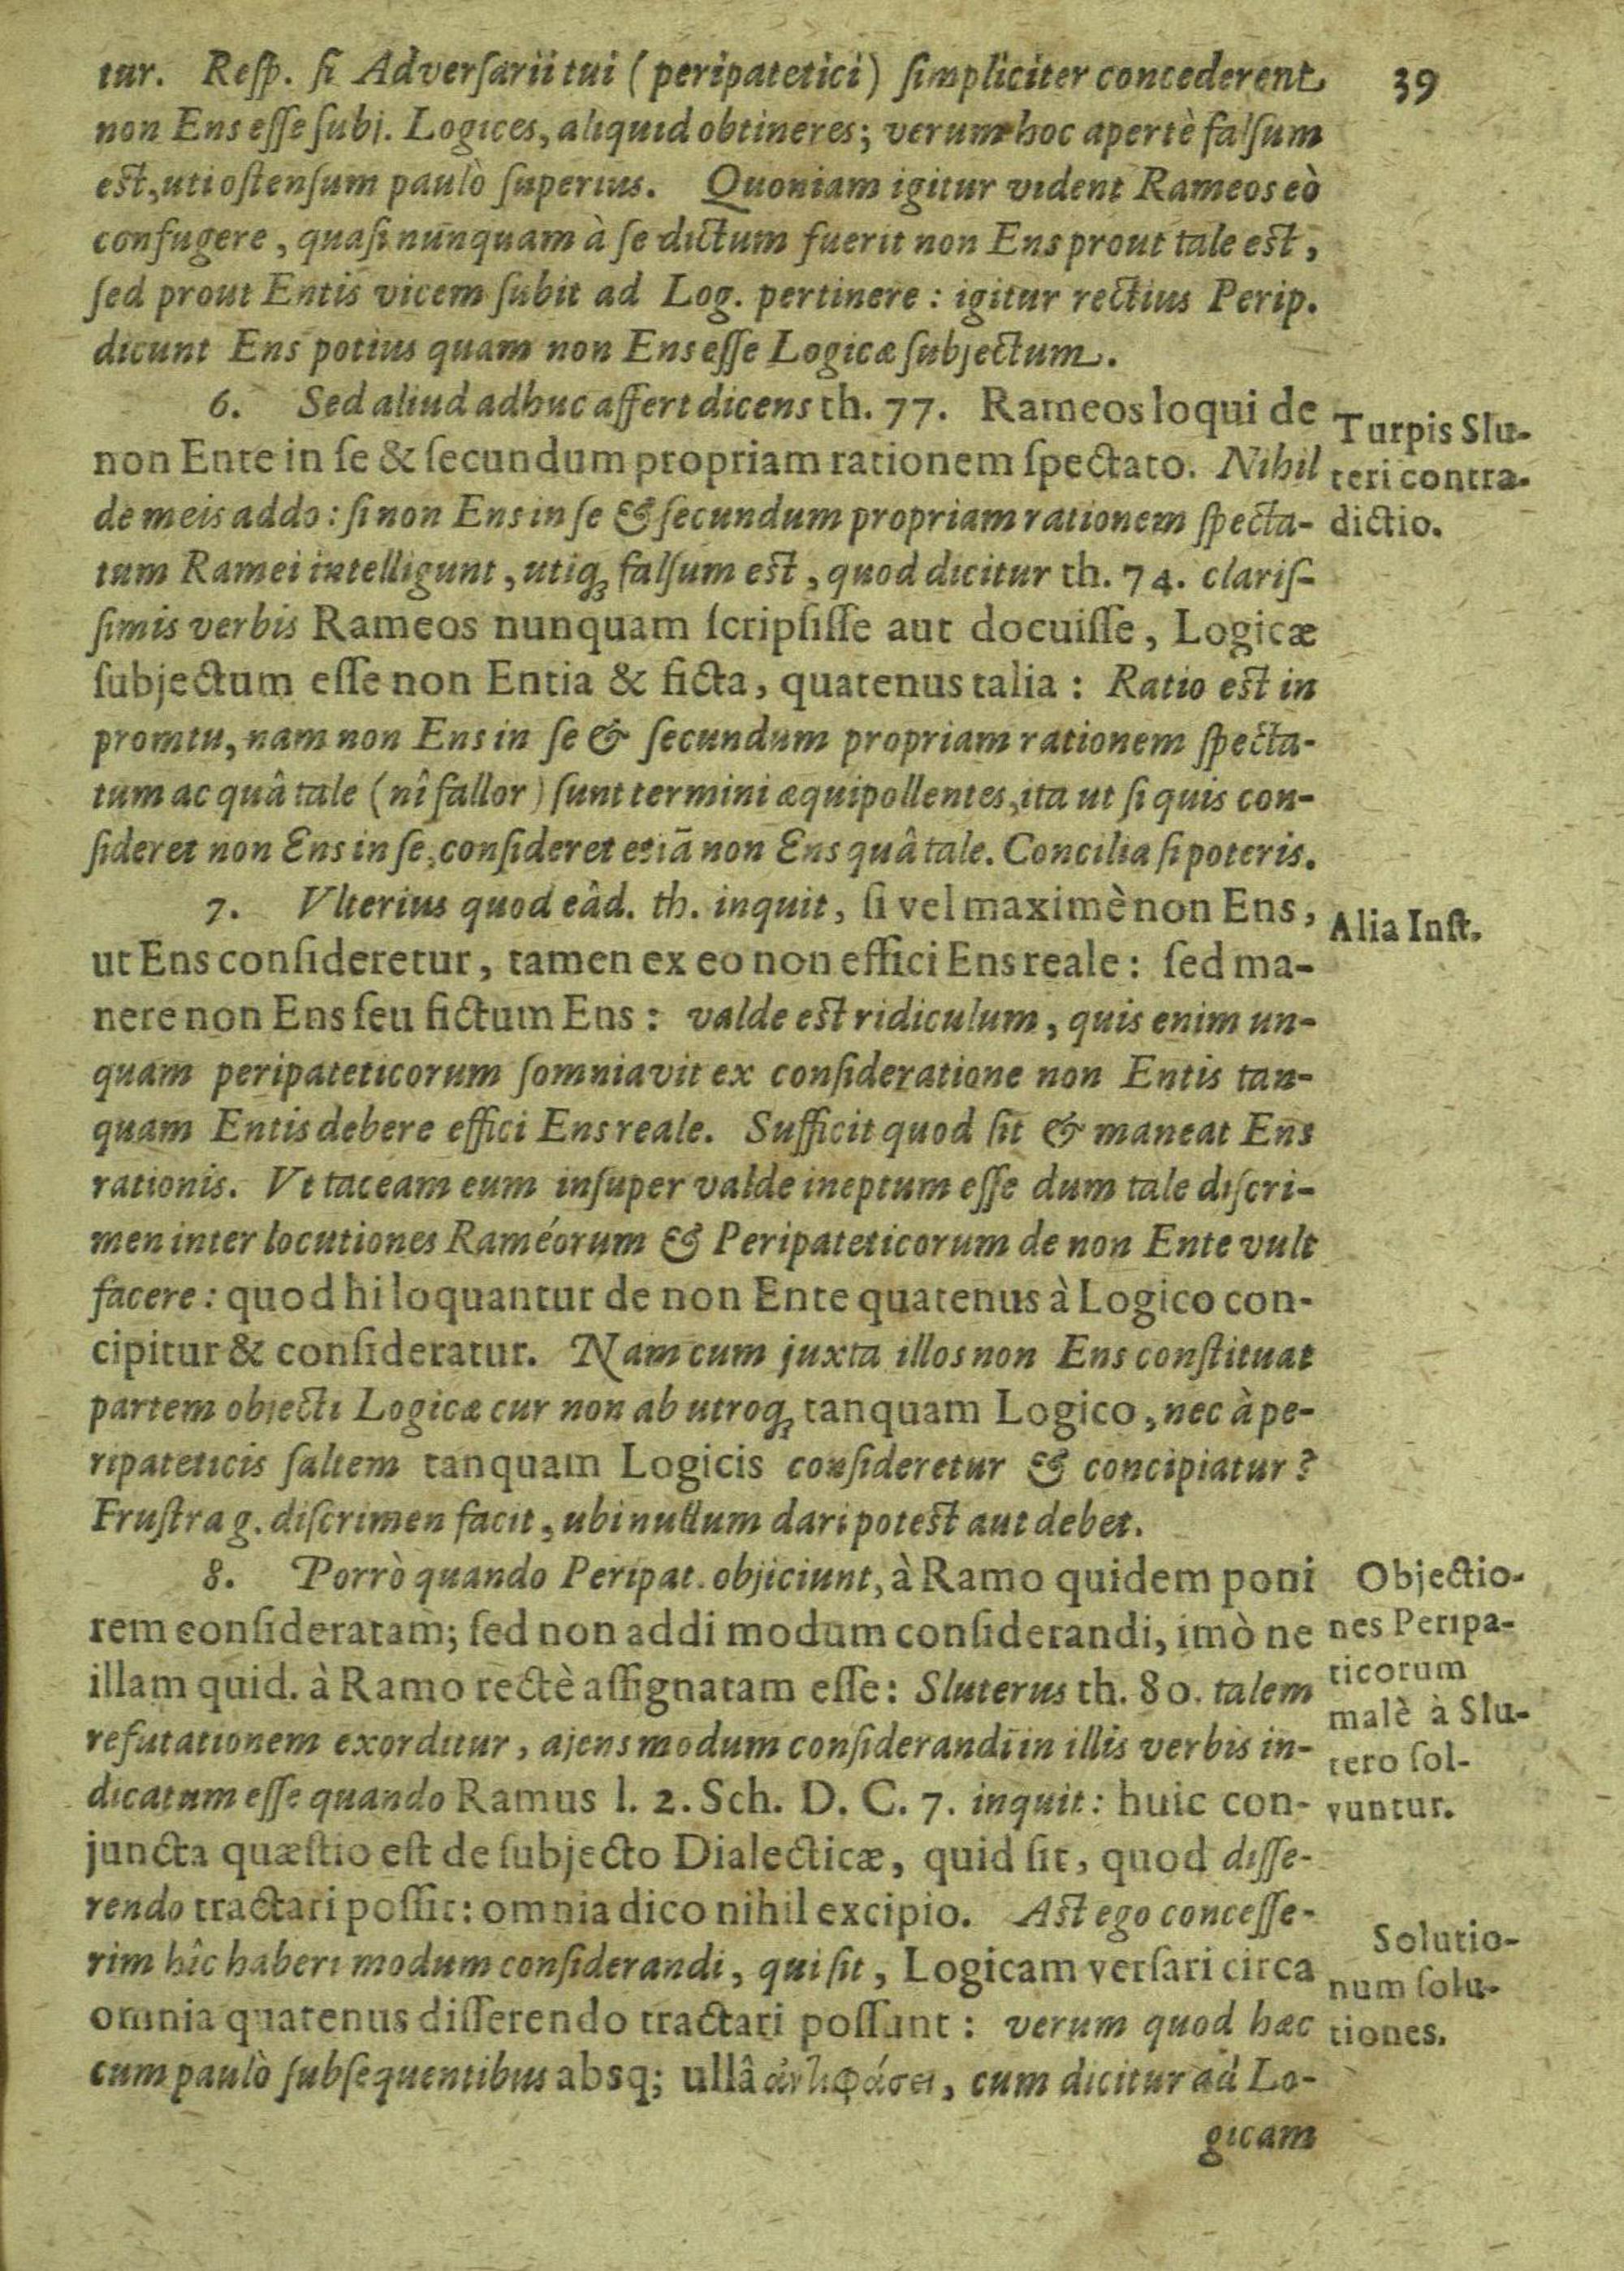 39
tur. Reſp. ſi Adverſarii tui (peripatetici) ſimpliciter concederent
non Ens eſſe ſubj. Logices, aliquid obtineres; verum hoc apertè falſum
eſt, uti oſtenſum paulò ſuperius. Quoniam igitur vident Rameos eò
confugere, quaſi nunquam à ſe dictum fuerit non Ens prout tale eſt,
ſed prout Entis vicem ſubit ad Log. pertinere: igitur rectius Perip.
dicunt Ens potius quam non Ens eſſe Logicæ ſubjectum.
6. Sed aliud adhuc affert dicens th. 77. Rameos loqui de
non Ente in ſe & ſecundum propriam rationem ſpectato. Nihil
de meis addo: ſi non Ens in ſe & ſecundum propriam rationem ſpecta-
tum Ramei intelligunt, utiq; falſum eſt, quod dicitur th. 74. clariſ-
ſimis verbis Rameos nunquam ſcripſiſſe aut docuiſſe, Logicæ
ſubjectum eſſe non Entia & ficta, quatenus talia: Ratio eſt in
promtu, nam non Ens in ſe & ſecundum propriam rationem ſpecta-
tum ac quâ tale (nî fallor) ſunt termini æquipollentes, ita ut ſi quis con-
ſideret non Ens in ſe, conſideret etiã non Ens quâ tale. Concilia ſi poteris.
Turpis Slu-
teri contra-
dictio.
7. Vlterius quod eâd. th. inquit, ſi vel maximè non Ens,
ut Ens conſideretur, tamen ex eo non effici Ens reale: ſed ma-
nere non Ens ſeu fictum Ens: valde eſt ridiculum, quis enim un-
quam peripateticorum ſomniavit ex conſideratione non Entis tan-
quam Entis debere effici Ens reale. Sufficit quod ſit & maneat Ens
rationis. Vt taceam eum inſuper valde ineptum eſſe dum tale diſcri-
men inter locutiones Raméorum & Peripateticorum de non Ente vult
facere: quod hi loquantur de non Ente quatenus à Logico con-
cipitur & conſideratur. Nam cum juxta illos non Ens conſtituat
partem objecti Logicæ cur non ab utroq; tanquam Logico, nec à pe-
ripateticis ſaltem tanquam Logicis conſideretur & concipiatur?
Fruſtra g. diſcrimen facit, ubi nullum dari poteſt aut debet.
Alia Inſt.
8. Porrò quando Peripat. objiciunt, à Ramo quidem poni
rem conſideratam; ſed non addi modum conſiderandi, imò ne
illam quid. à Ramo rectè aſſignatam eſſe: Sluterus th. 80. talem
refutationem exorditur, ajens modum conſiderandi in illis verbis in-
dicatum eſſe quando Ramus l. 2. Sch. D. C. 7. inquit: huic con-
juncta quæſtio eſt de ſubjecto Dialecticæ, quid ſit, quod diſſe-
rendo tractari poſſit: omnia dico nihil excipio. Aſt ego conceſſe-
rim hîc haberi modum conſiderandi, qui ſit, Logicam verſari circa
omnia quatenus diſſerendo tractari poſſunt: verum quod hæc
cum paulò ſubſequentibus absq; ullâ ἀντιφάσει, cum dicitur ad Lo-
gicam
Objectio-
nes Peripa-
ticorum
malè à Slu-
tero ſol-
vuntur.
Solutio-
num ſolu-
tiones.